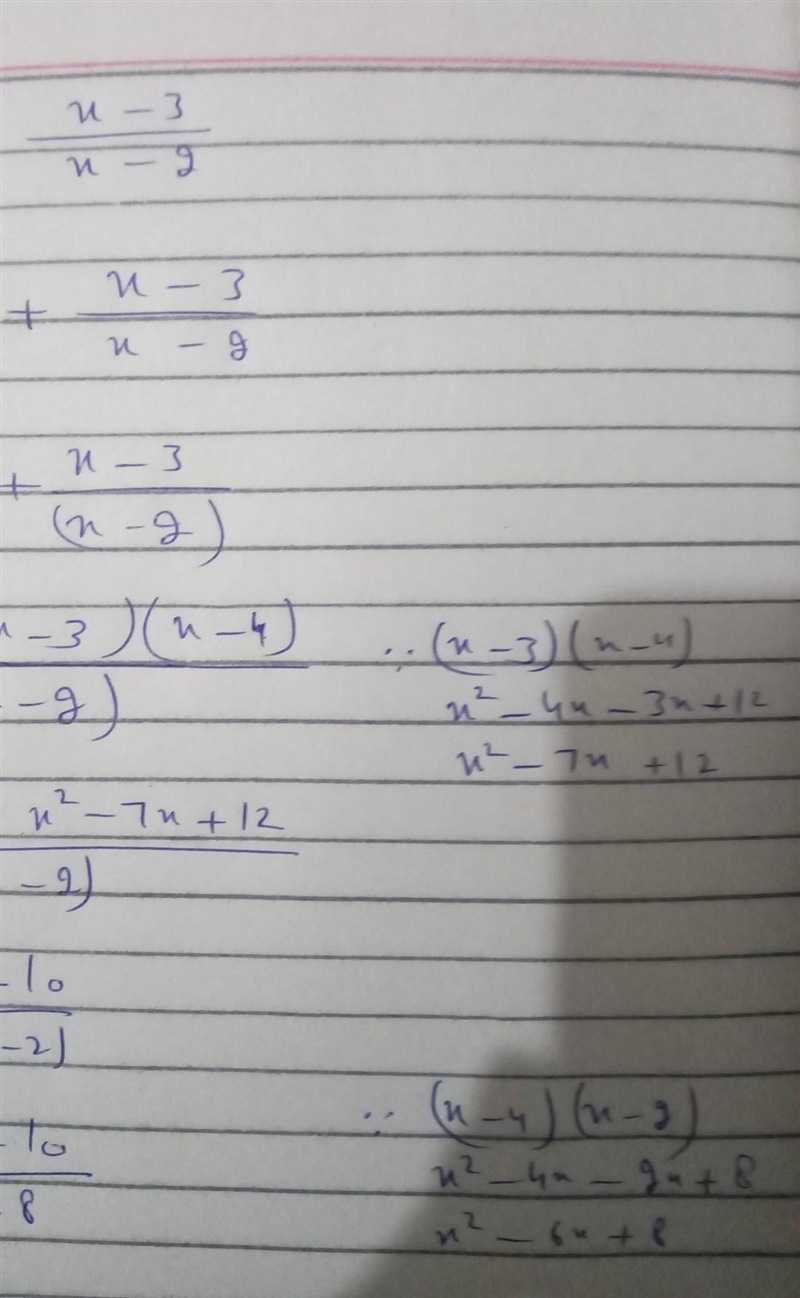 x - 3
x - 2
+ x - 3
x - 2
+ x - 3
(x - 2)
x - 3)(x - 4)
- 2)
∵ (x - 3)(x - 4)
x² - 4x - 3x + 12
x² - 7x + 12
x² - 7x + 12
- 2)
- 10
- 2)
- 10
8
∵ (x - 4)(x - 2)
x² - 4x - 2x + 8
x² - 6x + 8